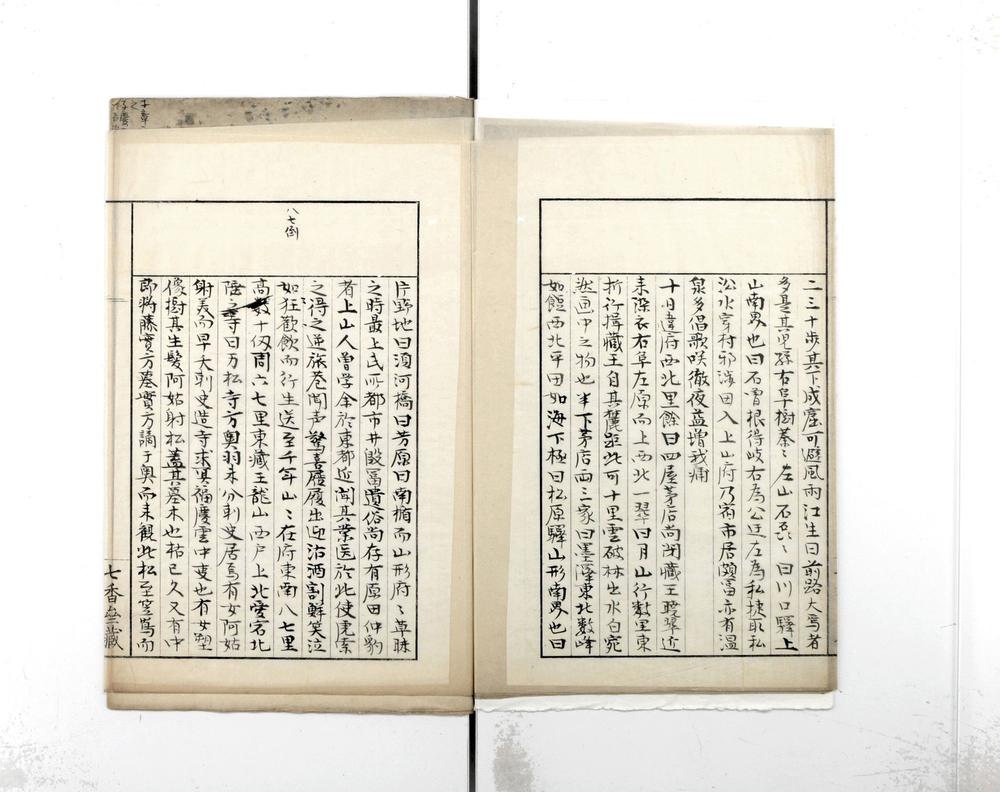 二三十歩其下成窪可避風雨江生曰前路大寫者
多是其兒孫右阜樹蓁〻左山石磊〻曰川口驛上
山南界也曰石曽根得岐右為公迂左為私捷取私
沿水穿村邪渉田入上山府乃宿市居頗富亦有温
泉多倡歌咲徹夜益増我痛
十日違府西北里餘曰四屋茅店尚閉藏王
来染衣右阜左原而上西北一翠曰月山行数里東
折行揖藏王自其麓距此可十里雲破林出水白宛
然画中之物也下茅店両三家曰黒澤東北数峰
如饂西北平田如海下極曰松原驛山形南界也曰
片野地曰須河橋曰芳原曰南楯而山形府〻草昧
之時最上氏所都市井殷冨遺俗尚存有原田仲豹
者上山人曽学余於東都近聞其業医於此使虎索
之得之逆旅巷聞声驚喜履履出迎沽酒割鮮笑泣
如狂歓飲而行生送至千年山〻在府東南八七里
高数十仭周六七里東藏王龍山西戸上北雲宕北
陰之寺曰万松寺方奥羽未分刺史居焉有女阿姑
射美而早夭刺史造寺求冥福慶雲中事也有女塑
像樹其生髪阿姑射松蓋其墓木也枯已久又有中
即将藤實方墓實方謫于奥而来観此松至笠嶌而
八七倒
七香齋藏